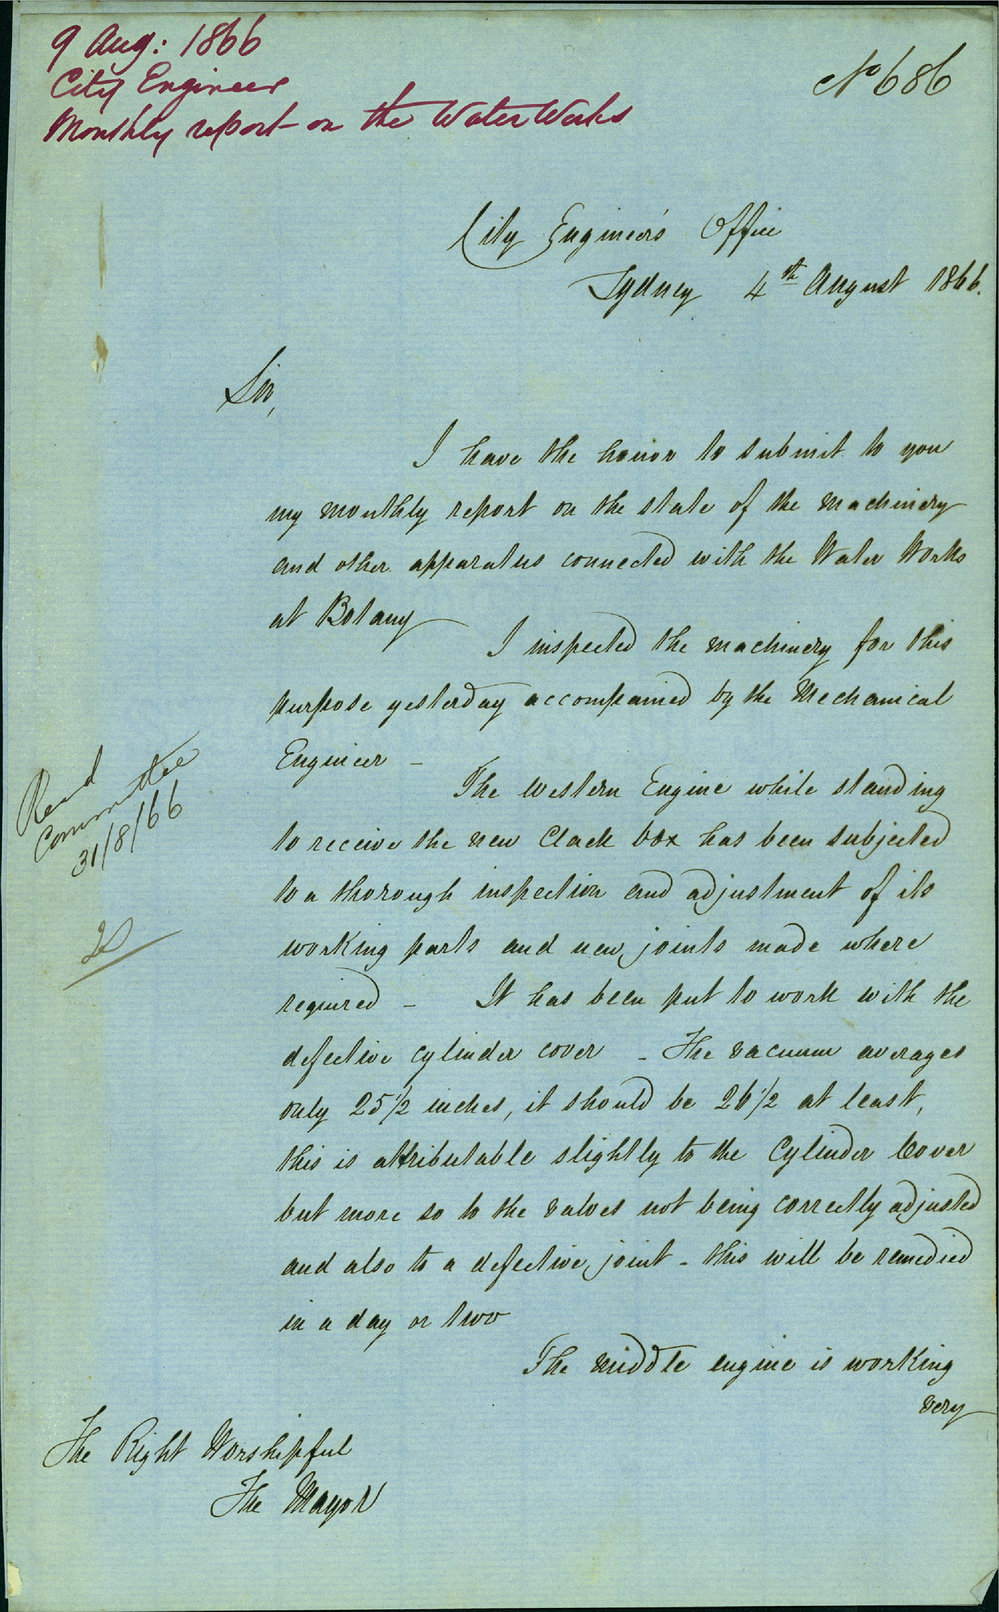 9 Aug: 1866
City Engineer
Monthly report on the Water Works
No 686
City Engineer's Office
Sydney 4th August 1866.
Sir,
I have the honor to submit to you
my monthly report on the state of the machinery
and other apparatus connected with the Water Works
at Botany
I inspected the machinery for this
purpose yesterday accompanied by the Mechanical
Engineer -
The Western Engine while standing
to receive the new Clack box has been subjected
to a thorough inspection and adjustment of its
working parts and new joints made where
required - It has been put to work with the
defective cylinder cover - The vacuum averages
only 25 1/2 inches, it should be 26 1/2 at least,
this is attributable slightly to the Cylinder Cover
but more so to the valves not being correctly adjusted
and also to a defective joint - this will be remedied
in a day or two
The middle engine is working
very
The Right Worshipful
The Mayor
Read
Committee
31/8/66